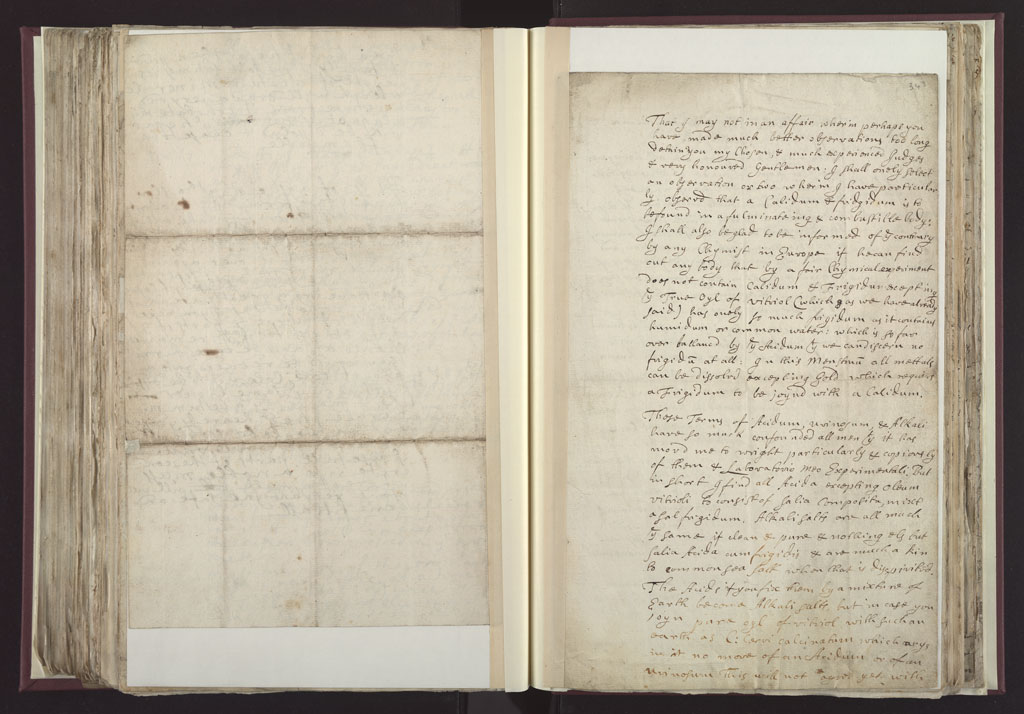 That I may not in an affair wherin perhaps you
have made much better observations too long
detain you my Chosen, & much experienced Judges
& very honoured Gentlemen. I shall onely select
an observation or two wherin I have particular
ly observd that a Calidum & frigidum is to
befound in a fulminateing & combustible body.
I shall also be glad to be informed of ye contrary
by any Chymist in Europe if he can find
out any body that by a fair Chymical experiment
does not contain Calidum & Frigidum excepting
ye True Oyl of vitriol (which as we have already
said) has onely so much frigidum as it contains
humidum or common water: which is so far
over ballancd by ye Acidum yt we can discern no
frigidū at all: In this Menstruū all mettals
can be dissolvd excepting Gold which requires
a Frigidum to be joynd with a Calidum.
These Terms of Acidum, urinosum, & Alkali
have so much confounded all men yt it has
mov'd me to wright particularly & copiously
of them & Laboratorio meo Experimentali. But
in short I find all Acida excepting oleum
vitrioli to consist of Salia Composita, mixt
a sal frigidum. Alkali salts are all much
ye same if clean & pure & nothing els but
Salia Acida cum frigidis & are much a kin
to common sea salt when that is dispirited.
The Acids if you fix them by a mixture of
Earth become Alkali salts, but in case you
joyn pure oyl of vitriol with such an
earth as calcinatum which
in it no more of an Acidum or of an
urinosum this will not yet with